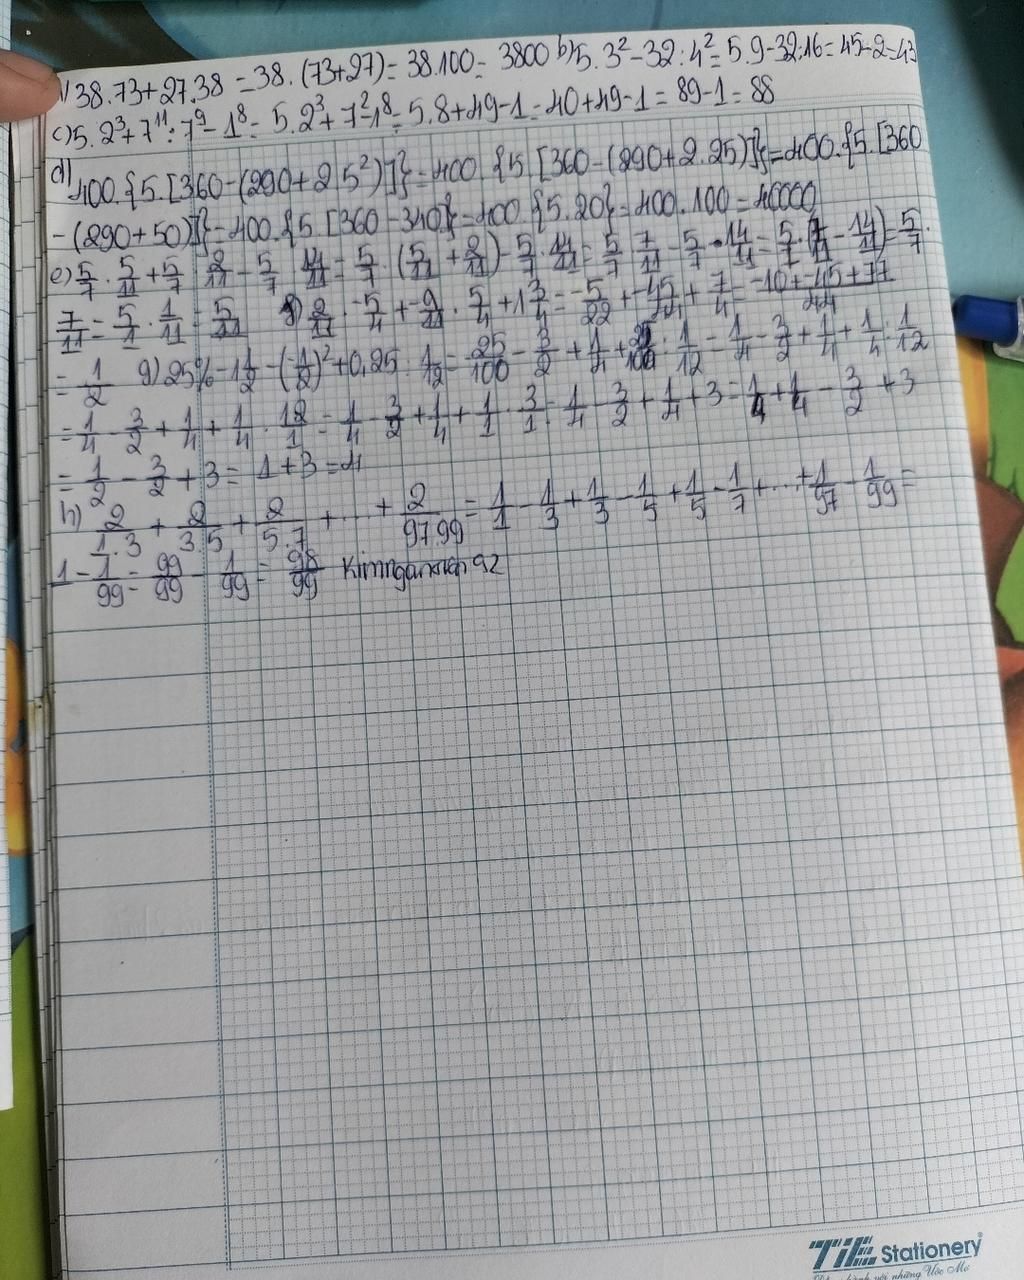 38.73+27.38 = 38.(73+27) = 38.100 = 3800 b) 5.3²-32:4² = 5.9-32:16 = 45-2=43
c) 5.2³+7¹¹:7⁹-1⁸ = 5.2³+7²-1⁸ = 5.8+49-1 = 40+49-1 = 89-1 = 88
d) 400.{5.[360-(290+2.5²)]} = 400.{5.[360-(290+2.25)]} = 400.{5.[360
-(290+50)]} = 400.{5.[360-340]} = 400.{5.20} = 400.100 = 40000
e) 5/7 . 5/11 + 5/7 . 2/11 - 5/7 . 14/11 = 5/7 . (5/11 + 2/11) - 5/7 . 14/11 = 5/7 . 7/11 - 5/7 . 14/11 = 5/7 . (7/11 - 14/11) = 5/7 .
7/11 = 5/1 . 1/11 = 5/11 2/11 . -5/4 + -9/11 . 5/4 + 1 3/4 = -5/22 + -45/44 + 7/4 = -10+-45+77/44
= 1/2 g) 25% - 1 1/2 - (-1/2)² + 0,25 : 1/12 = 25/100 - 3/2 + 1/4 + 25/100 : 1/12 = 1/4 - 3/2 + 1/4 + 1/4 : 1/12
= 1/4 - 3/2 + 1/4 + 1/4 . 12/1 = 1/4 - 3/2 + 1/4 + 1/1 . 3/1 = 1/4 - 3/2 + 1/4 + 3 = 1/4 + 1/4 - 3/2 + 3
= 1/2 - 3/2 + 3 = 1+3 = 4
h) 2/1.3 + 2/3.5 + 2/5.7 + ... + 2/97.99 = 1/1 - 1/3 + 1/3 - 1/5 + 1/5 - 1/7 + ... + 1/97 - 1/99 =
1 - 1/99 = 99/99 - 1/99 = 98/99
TiE Stationery